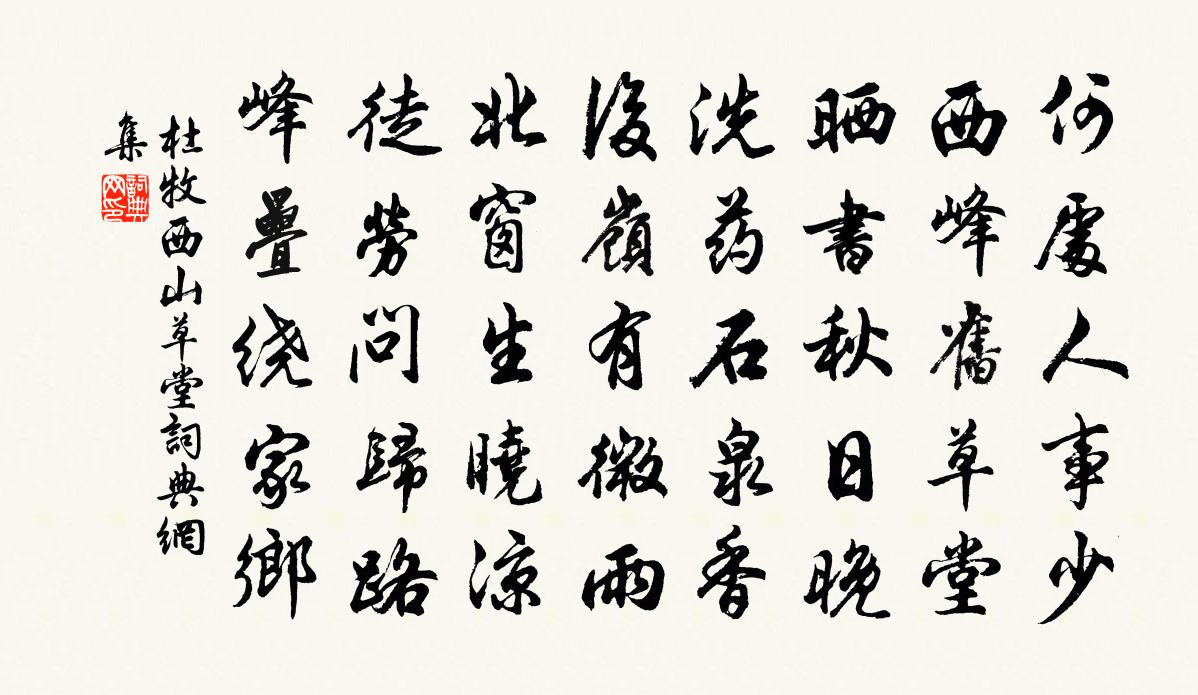 何處人事少
西峰舊草堂
晒書秋日晚
洗药石泉香
後嶺有微雨
北窗生曉涼
徒勞問歸路
峰疊绕家鄉
杜牧西山草堂詞典網
集
詞典
网印